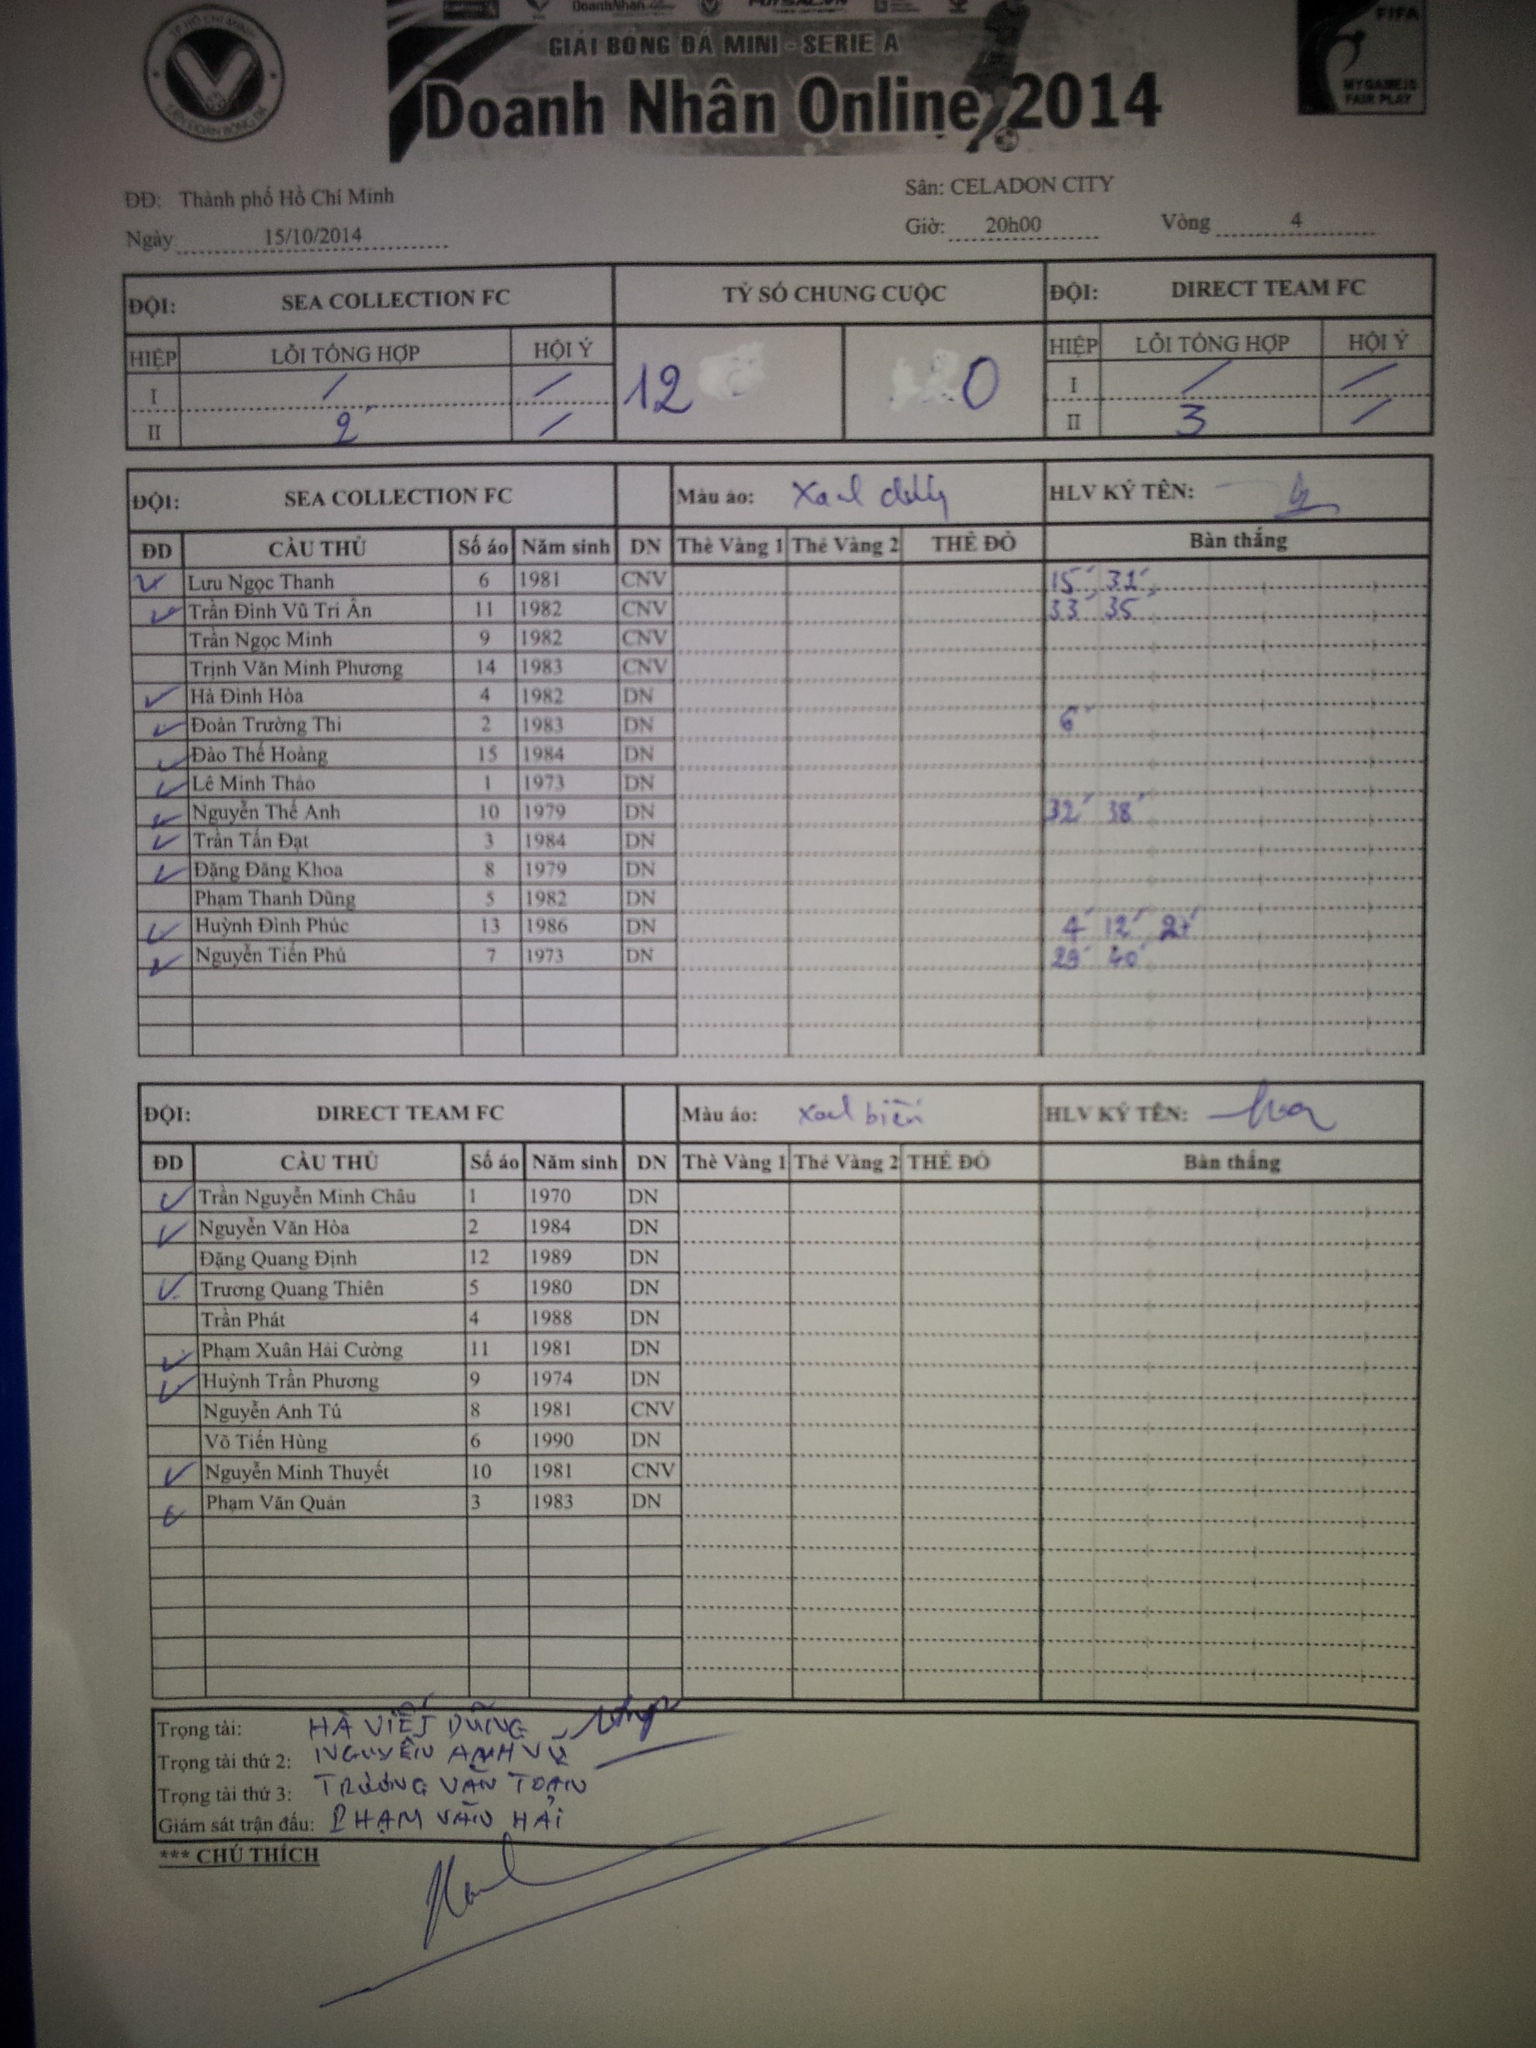 TP HỒ CHÍ MINH
LIÊN ĐOÀN BÓNG ĐÁ
DoanhNhan
GIẢI BÓNG ĐÁ MINI - SERIE A
Doanh Nhân Online 2014
FIFA
MY GAME IS
FAIR PLAY
ĐĐ: Thành phố Hồ Chí Minh Sân: CELADON CITY
Ngày 15/10/2014 Giờ: 20h00 Vòng 4
ĐỘI: SEA COLLECTION FC TỶ SỐ CHUNG CUỘC ĐỘI: DIRECT TEAM FC
HIỆP LỖI TỔNG HỢP HỘI Ý 12 0 HIỆP LỖI TỔNG HỢP HỘI Ý
I / / I / /
II 2 / II 3 /
ĐỘI: SEA COLLECTION FC Màu áo: Xanh HLV KÝ TÊN:
ĐD CẦU THỦ Số áo Năm sinh DN Thẻ Vàng 1 Thẻ Vàng 2 THẺ ĐỎ Bàn thắng
Lưu Ngọc Thanh 6 1981 CNV 15' 31'
Trần Đình Vũ Tri Ân 11 1982 CNV 33' 35
Trần Ngọc Minh 9 1982 CNV
Trịnh Văn Minh Phương 14 1983 CNV
Hà Đình Hòa 4 1982 DN
Đoàn Trường Thi 2 1983 DN 6'
Đào Thế Hoàng 15 1984 DN
Lê Minh Thảo 1 1973 DN
Nguyễn Thế Anh 10 1979 DN 32' 38'
Trần Tấn Đạt 3 1984 DN
Đặng Đăng Khoa 8 1979 DN
Phạm Thanh Dũng 5 1982 DN
Huỳnh Đình Phúc 13 1986 DN 4' 12'
Nguyễn Tiến Phú 7 1973 DN 29' 40'
ĐỘI: DIRECT TEAM FC Màu áo: Xanh biển HLV KÝ TÊN:
ĐD CẦU THỦ Số áo Năm sinh DN Thẻ Vàng 1 Thẻ Vàng 2 THẺ ĐỎ Bàn thắng
Trần Nguyễn Minh Châu 1 1970 DN
Nguyễn Văn Hòa 2 1984 DN
Đặng Quang Định 12 1989 DN
Trương Quang Thiên 5 1980 DN
Trần Phát 4 1988 DN
Phạm Xuân Hải Cường 11 1981 DN
Huỳnh Trần Phương 9 1974 DN
Nguyễn Anh Tú 8 1981 CNV
Võ Tiến Hùng 6 1990 DN
Nguyễn Minh Thuyết 10 1981 CNV
Phạm Văn Quản 3 1983 DN
Trọng tài: HÀ VIẾT DŨNG
Trọng tài thứ 2: NGUYỄN ANH VŨ
Trọng tài thứ 3: TRƯƠNG VĂN TOAN
Giám sát trận đấu: PHẠM VĂN HẢI
*** CHÚ THÍCH